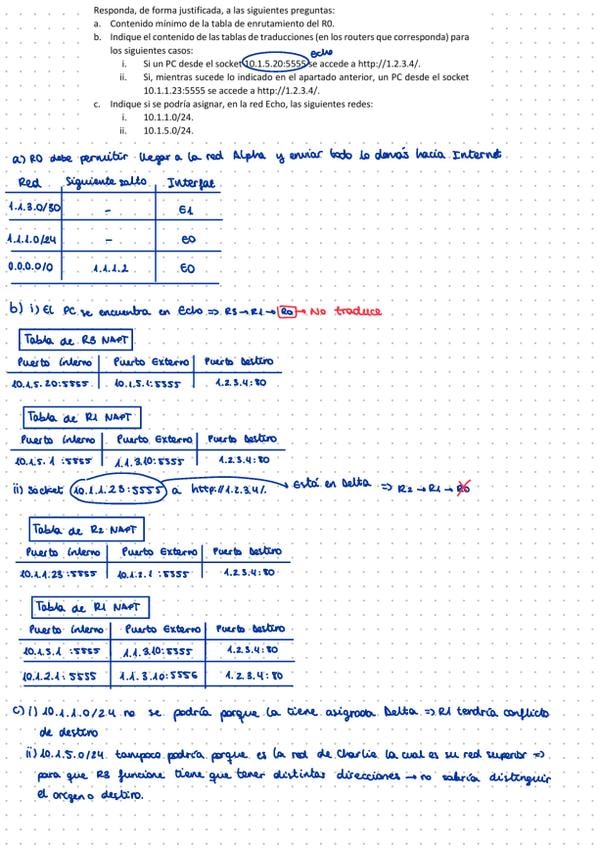 Responda, de forma justificada, a las siguientes preguntas:
a. Contenido mínimo de la tabla de enrutamiento del R0.
b. Indique el contenido de las tablas de traducciones (en los routers que corresponda) para
los siguientes casos:
Echo
i. Si un PC desde el socket 10.1.5.20:5555 se accede a http://1.2.3.4/.
ii. Si, mientras sucede lo indicado en el apartado anterior, un PC desde el socket
10.1.1.23:5555 se accede a http://1.2.3.4/.
c. Indique si se podría asignar, en la red Echo, las siguientes redes:
i. 10.1.1.0/24.
ii. 10.1.5.0/24.
a) R0 debe permitir llegar a la red Alpha y enviar todo lo demás hacia Internet
Red Siguiente salto Interfaz
1.1.3.0/30 - E1
1.1.1.0/24 - E0
0.0.0.0/0 1.1.1.2 E0
b) i) El PC se encuentra en Echo => R3 → R1 → R0 → No traduce
Tabla de R3 NAPT
Puerto Interno Puerto Externo Puerto Destino
10.1.5.20:5555 10.1.5.1:5555 1.2.3.4:80
Tabla de R1 NAPT
Puerto Interno Puerto Externo Puerto Destino
10.1.5.1 :5555 1.1.3.10:5555 1.2.3.4:80
ii) Socket 10.1.1.23:5555 a http://1.2.3.4/. → Está en Delta => R2 → R1 → R0
Tabla de R2 NAPT
Puerto Interno Puerto Externo Puerto Destino
10.1.1.23 :5555 10.1.2.1 :5555 1.2.3.4:80
Tabla de R1 NAPT
Puerto Interno Puerto Externo Puerto Destino
10.1.5.1 :5555 1.1.3.10:5555 1.2.3.4:80
10.1.2.1: 5555 1.1.3.10:5556 1.2.3.4:80
c) i) 10.1.1.0/24 no se podría porque la tiene asignada Delta => R1 tendría conflicto
de destino
ii) 10.1.5.0/24 tampoco podría porque es la red de Charlie la cual es su red superior =>
para que R3 funcione tiene que tener distintas direcciones → no sabría distinguir
el origen o destino.